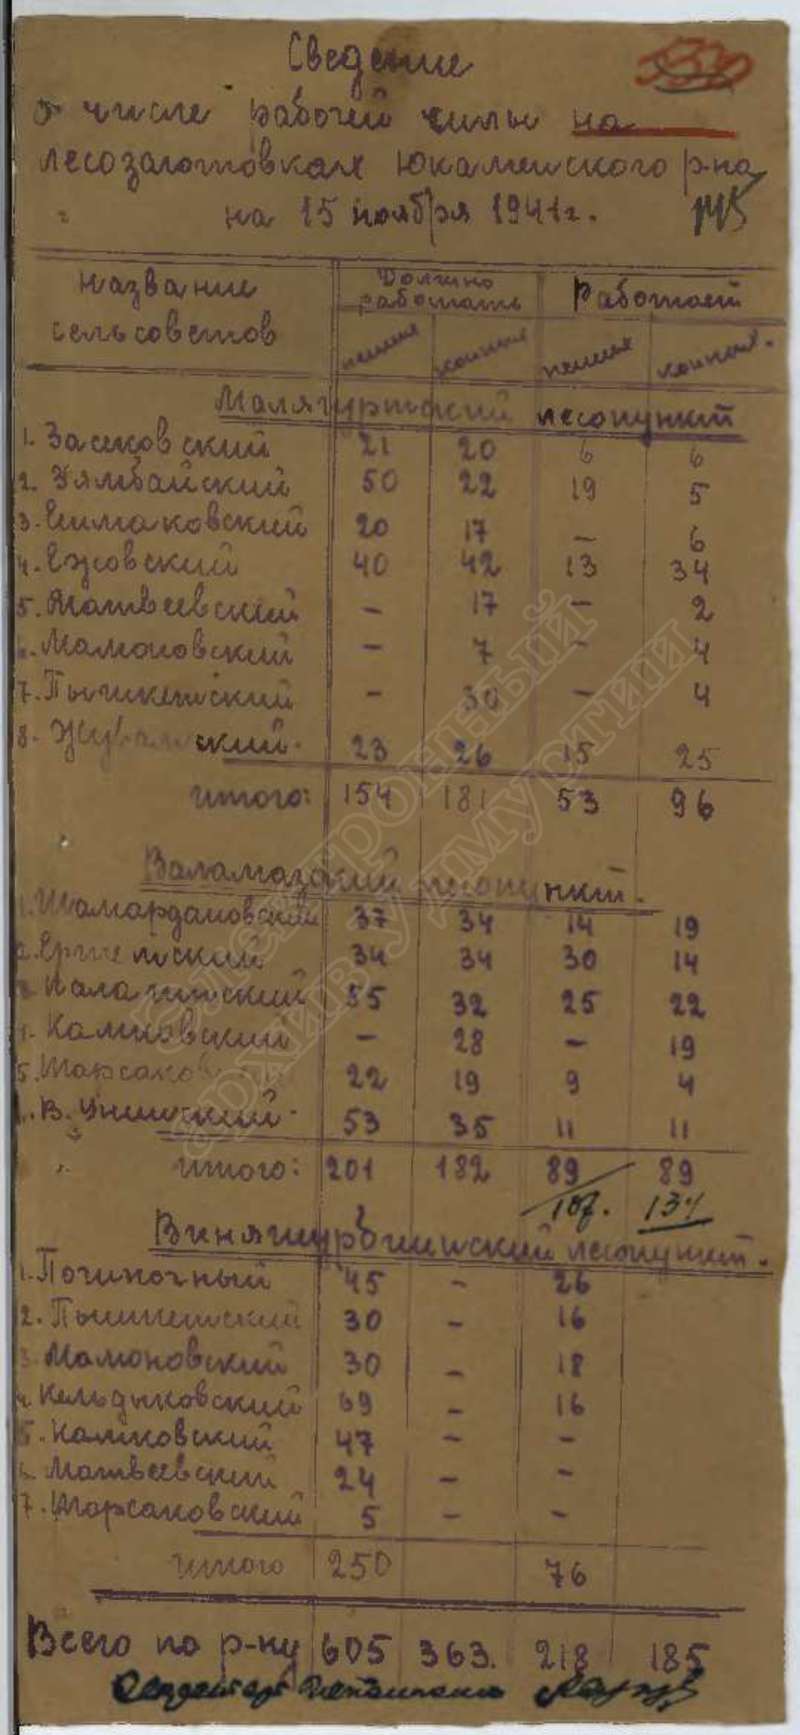 Сведение
о числе рабочей силы на
лесозаготовках Юкаменского р-на
на 15 ноября 1941 г. 145
Название сельсоветов Должно работать Работает
пешие конные пешие конные
Малягуртский лесопункт
1. Засековский 21 20 6 6
2. Зямбайский 50 22 19 5
3. Ешмаковский 20 17 – 6
4. Ежовский 40 42 13 34
5. Матвеевский – 17 – 2
6. Мамоновский – 7 – 4
7. Пышкетский – 30 – 4
8. Жувамский 23 26 15 25
итого: 154 181 53 96
Валамазский лесопункт.
1. Шамардановский 37 34 14 19
2. Ертемский 34 34 30 14
3. Палагинский 55 32 25 22
4. Камковский – 28 – 19
5. Шарсаковский 22 19 9 4
6. В. Унинский 53 35 11 11
итого: 201 182 89 89
107. 134
лесопункт.
1. Починочный 45 – 26
2. Пышкетский 30 – 16
3. Мамоновский 30 – 18
4. Кельдыковский 69 – 16
5. Камковский 47 – –
6. Матвеевский 24 – –
7. Шарсаковский 5 – –
итого 250 76
Всего по р-ну 605 363. 218 185
Электронный
архив Удмуртии